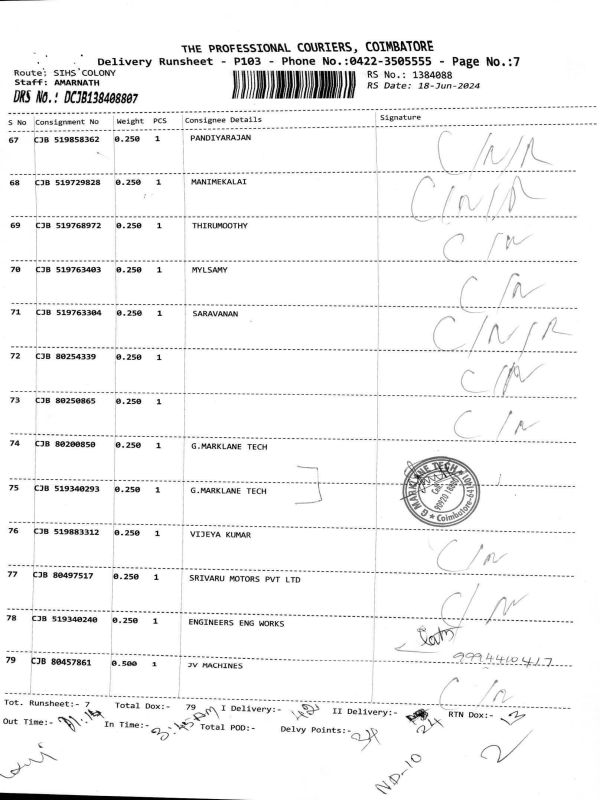 THE PROFESSIONAL COURIERS, COIMBATORE
Delivery Runsheet - P103 - Phone No.:0422-3505555 - Page No.:7
Route: SIHS COLONY RS No.: 1384088
Staff: AMARNATH RS Date: 18-Jun-2024
DRS No.: DCJB138408807
S No Consignment No Weight PCS Consignee Details Signature
67 CJB 519858362 0.250 1 PANDIYARAJAN C/N/R
68 CJB 519729828 0.250 1 MANIMEKALAI C/N/R
69 CJB 519768972 0.250 1 THIRUMOOTHY C/N
70 CJB 519763403 0.250 1 MYLSAMY C/N
71 CJB 519763304 0.250 1 SARAVANAN C/N/R
72 CJB 80254339 0.250 1 C/N
73 CJB 80250865 0.250 1 C/N
74 CJB 80200850 0.250 1 G.MARKLANE TECH
75 CJB 519340293 0.250 1 G.MARKLANE TECH
G MARKLANE TECH
Cell:
Coimbatore-641401
76 CJB 519883312 0.250 1 VIJEYA KUMAR C/N
77 CJB 80497517 0.250 1 SRIVARU MOTORS PVT LTD C/N
78 CJB 519340240 0.250 1 ENGINEERS ENG WORKS
9994410417
79 CJB 80457861 0.500 1 JV MACHINES C/N
Tot. Runsheet:- 7 Total Dox:- 79 I Delivery:- 42 II Delivery:- 24 RTN Dox:- 13
Out Time:- In Time:- 3:45 Pm Total POD:- Delvy Points:-
ND-10 2